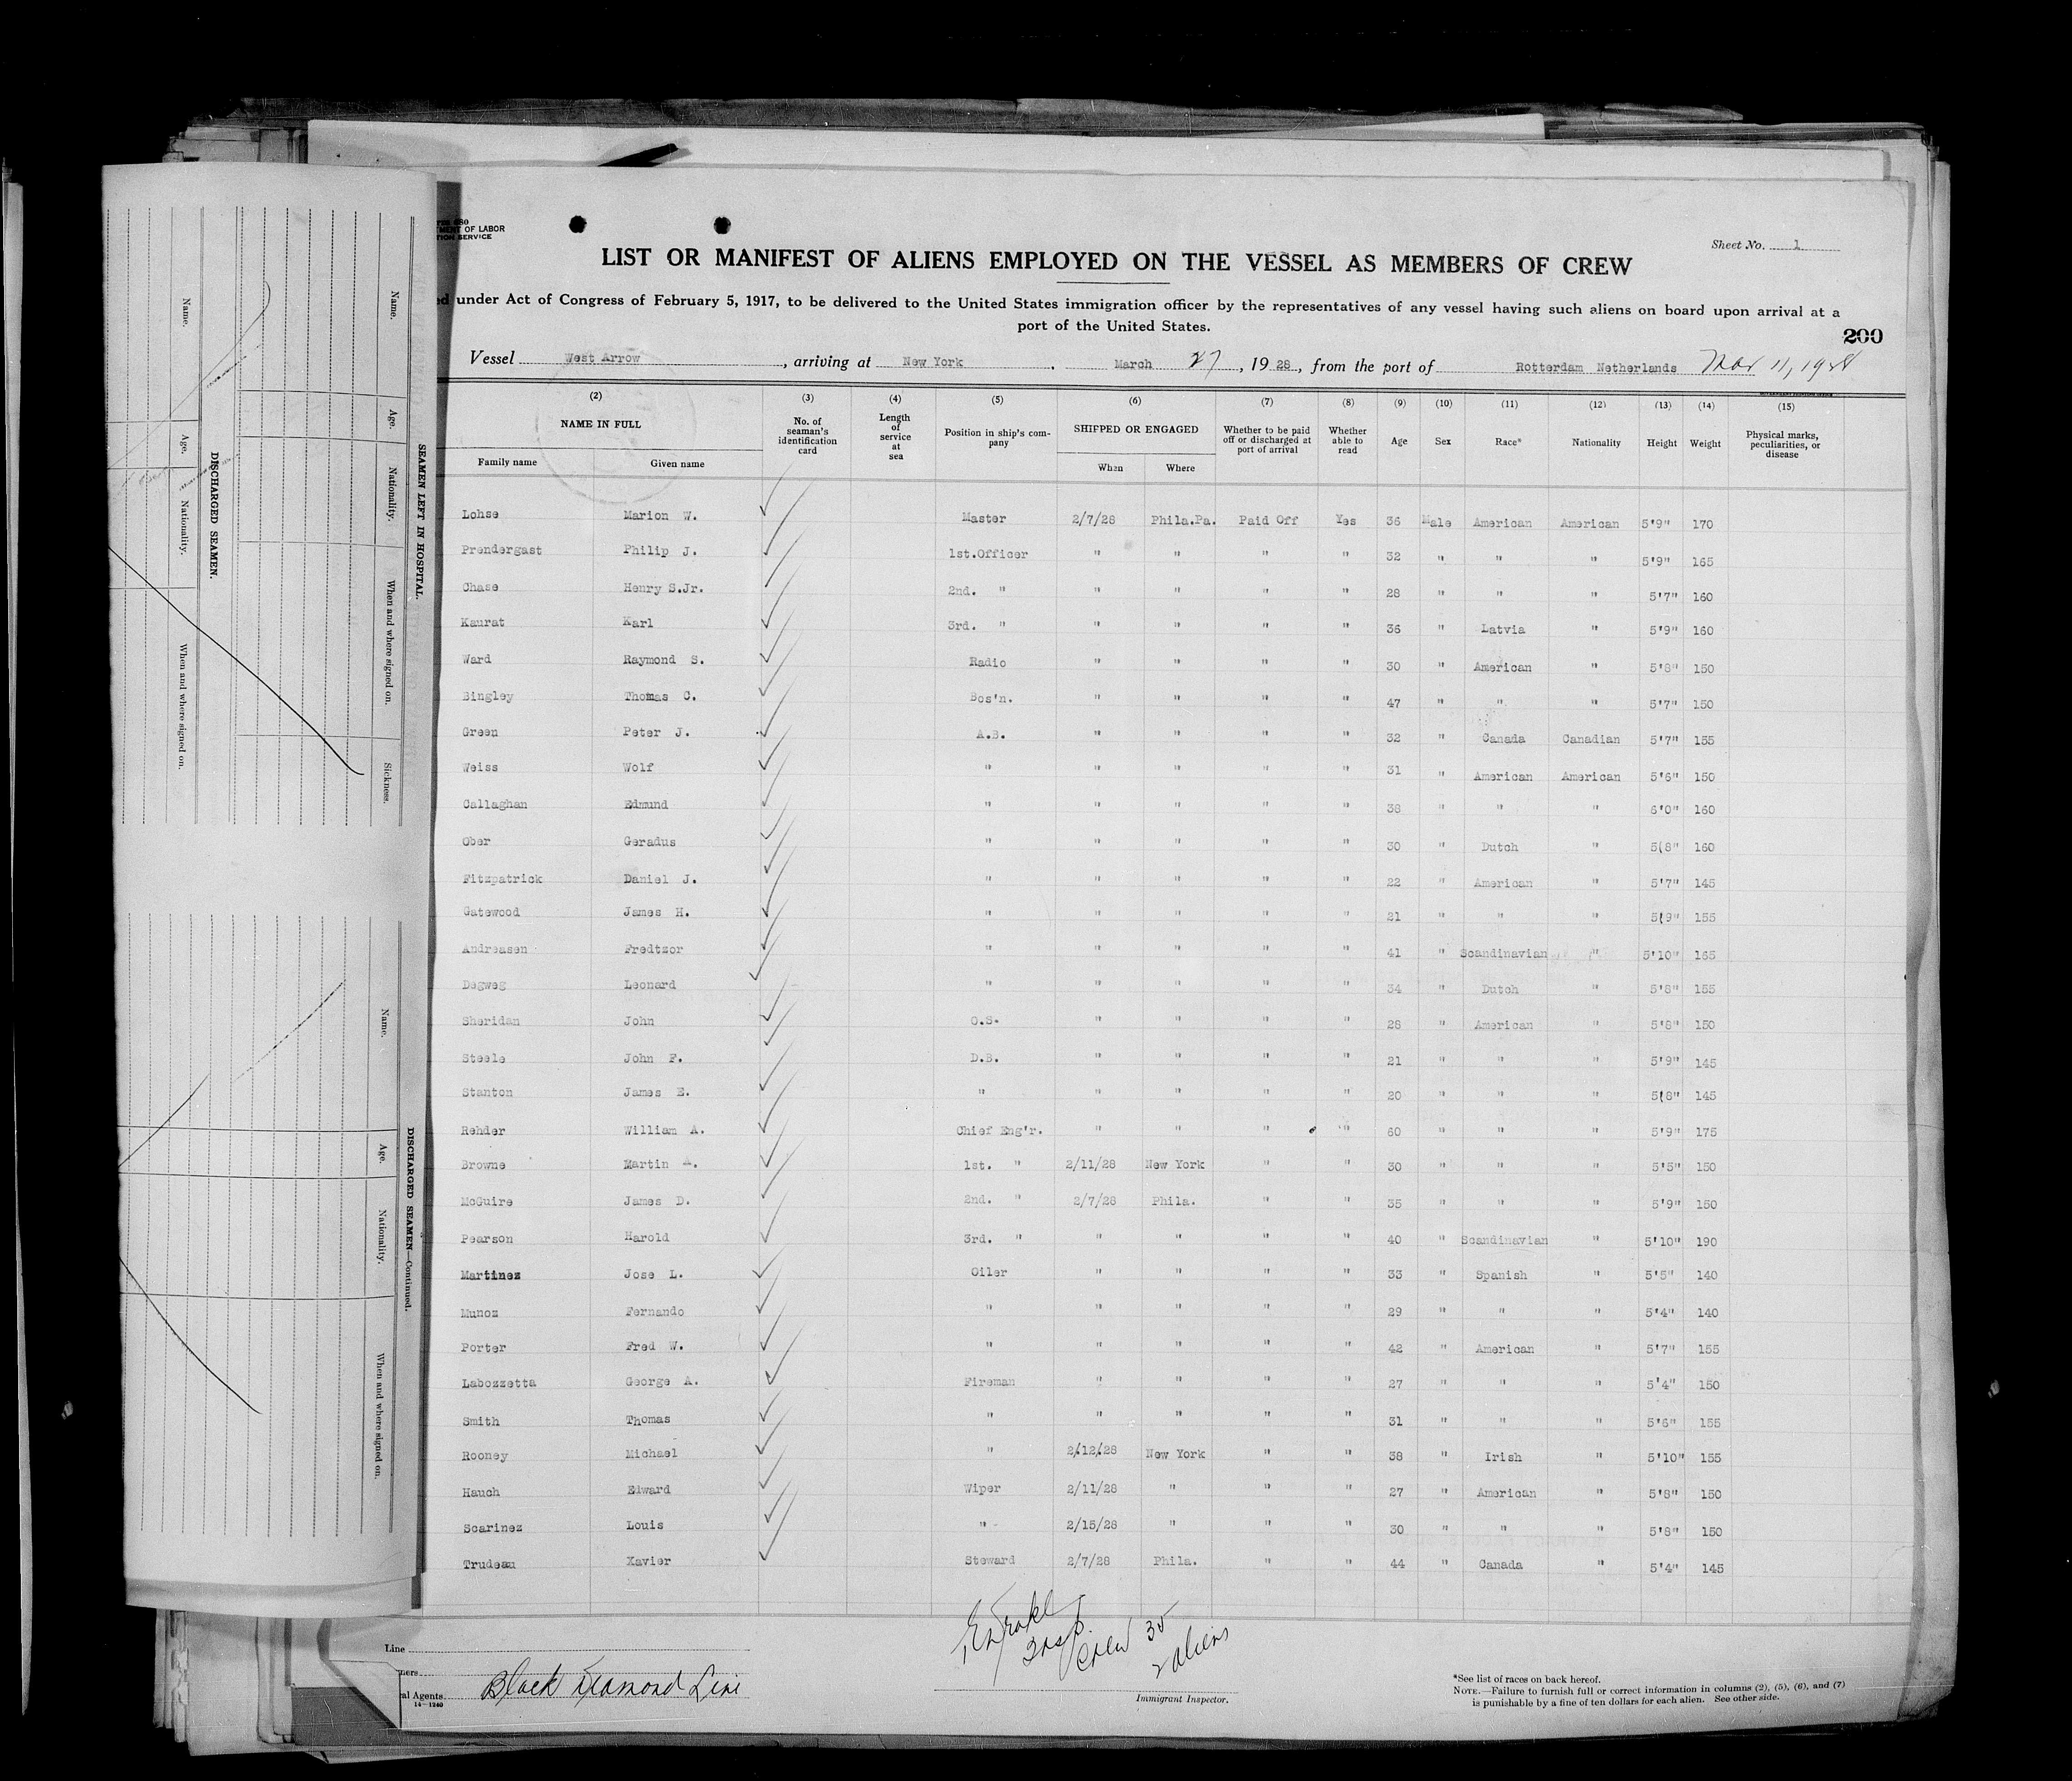 MENT OF LABOR
TION SERVICE
Sheet No. 1
LIST OR MANIFEST OF ALIENS EMPLOYED ON THE VESSEL AS MEMBERS OF CREW
ed under Act of Congress of February 5, 1917, to be delivered to the United States immigration officer by the representatives of any vessel having such aliens on board upon arrival at a
port of the United States.
200
Vessel West Arrow, arriving at New York, March 27, 1928, from the port of Rotterdam Netherlands Mar 11, 1928
(2) (3) (4) (5) (6) (7) (8) (9) (10) (11) (12) (13) (14) (15)
NAME IN FULL No. of seaman's identification card Length of service at sea Position in ship's company SHIPPED OR ENGAGED Whether to be paid off or discharged at port of arrival Whether able to read Age Sex Race* Nationality Height Weight Physical marks, peculiarities, or disease
Family name Given name When Where
Lohse Marion W. Master 2/7/28 Phila.Pa. Paid Off Yes 36 Male American American 5'9" 170
Prendergast Philip J. 1st.Officer " " " " 32 " " " 5'9" 165
Chase Henry S.Jr. 2nd. " " " " " 28 " " " 5'7" 160
Kaurat Karl 3rd. " " " " " 36 " Latvia " 5'9" 160
Ward Raymond S. Radio " " " " 30 " American " 5'8" 150
Bingley Thomas C. Bos'n. " " " " 47 " " " 5'7" 150
Green Peter J. A.B. " " " " 32 " Canada Canadian 5'7" 155
Weiss Wolf " " " " " 31 " American American 5'6" 150
Callaghan Edmund " " " " " 38 " " " 6'0" 160
Ober Geradus " " " " " 30 " Dutch " 5(8" 160
Fitzpatrick Daniel J. " " " " " 22 " American " 5'7" 145
Gatewood James H. " " " " " 21 " " " 5(9" 155
Andreasen Fredtzor " " " " " 41 " Scandinavian " 5'10" 165
Degweg Leonard " " " " " 34 " Dutch " 5'8" 155
Sheridan John O.S. " " " " 28 " American " 5'8" 150
Steele John F. D.B. " " " " 21 " " " 5'9" 145
Stanton James E. " " " " " 20 " " " 5(8" 145
Rehder William A. Chief Eng'r. " " " " 60 " " " 5'9" 175
Browne Martin A. 1st. " 2/11/28 New York " " 30 " " " 5'5" 150
McGuire James D. 2nd. " 2/7/28 Phila. " " 35 " " " 5'9" 150
Pearson Harold 3rd. " " " " " 40 " Scandinavian " 5'10" 190
Martinez Jose L. Oiler " " " " 33 " Spanish " 5'5" 140
Munoz Fernando " " " " " 29 " " " 5'4" 140
Porter Fred W. " " " " " 42 " American " 5'7" 155
Labozzetta George A. Fireman " " " " 27 " " " 5'4" 150
Smith Thomas " " " " " 31 " " " 5'6" 155
Rooney Michael " 2/12/28 New York " " 38 " Irish " 5'10" 155
Hauch Edward Wiper 2/11/28 " " " 27 " American " 5'8" 150
Scarinez Louis " 2/15/28 " " " 30 " " " 5'8" 150
Trudeau Xavier Steward 2/7/28 Phila. " " 44 " Canada " 5'4" 145
Crew 35
2 aliens
Line
ners
al Agents. Black Diamond Line
14-1240
Immigrant Inspector.
*See list of races on back hereof.
NOTE.—Failure to furnish full or correct information in columns (2), (5), (6), and (7)
is punishable by a fine of ten dollars for each alien. See other side.
SEAMEN LEFT IN HOSPITAL.
Name. Age. Nationality. When and where signed on. Sickness.
DISCHARGED SEAMEN.
Name. Age. Nationality. When and where signed on.
DISCHARGED SEAMEN—Continued.
Name. Age. Nationality. When and where signed on.